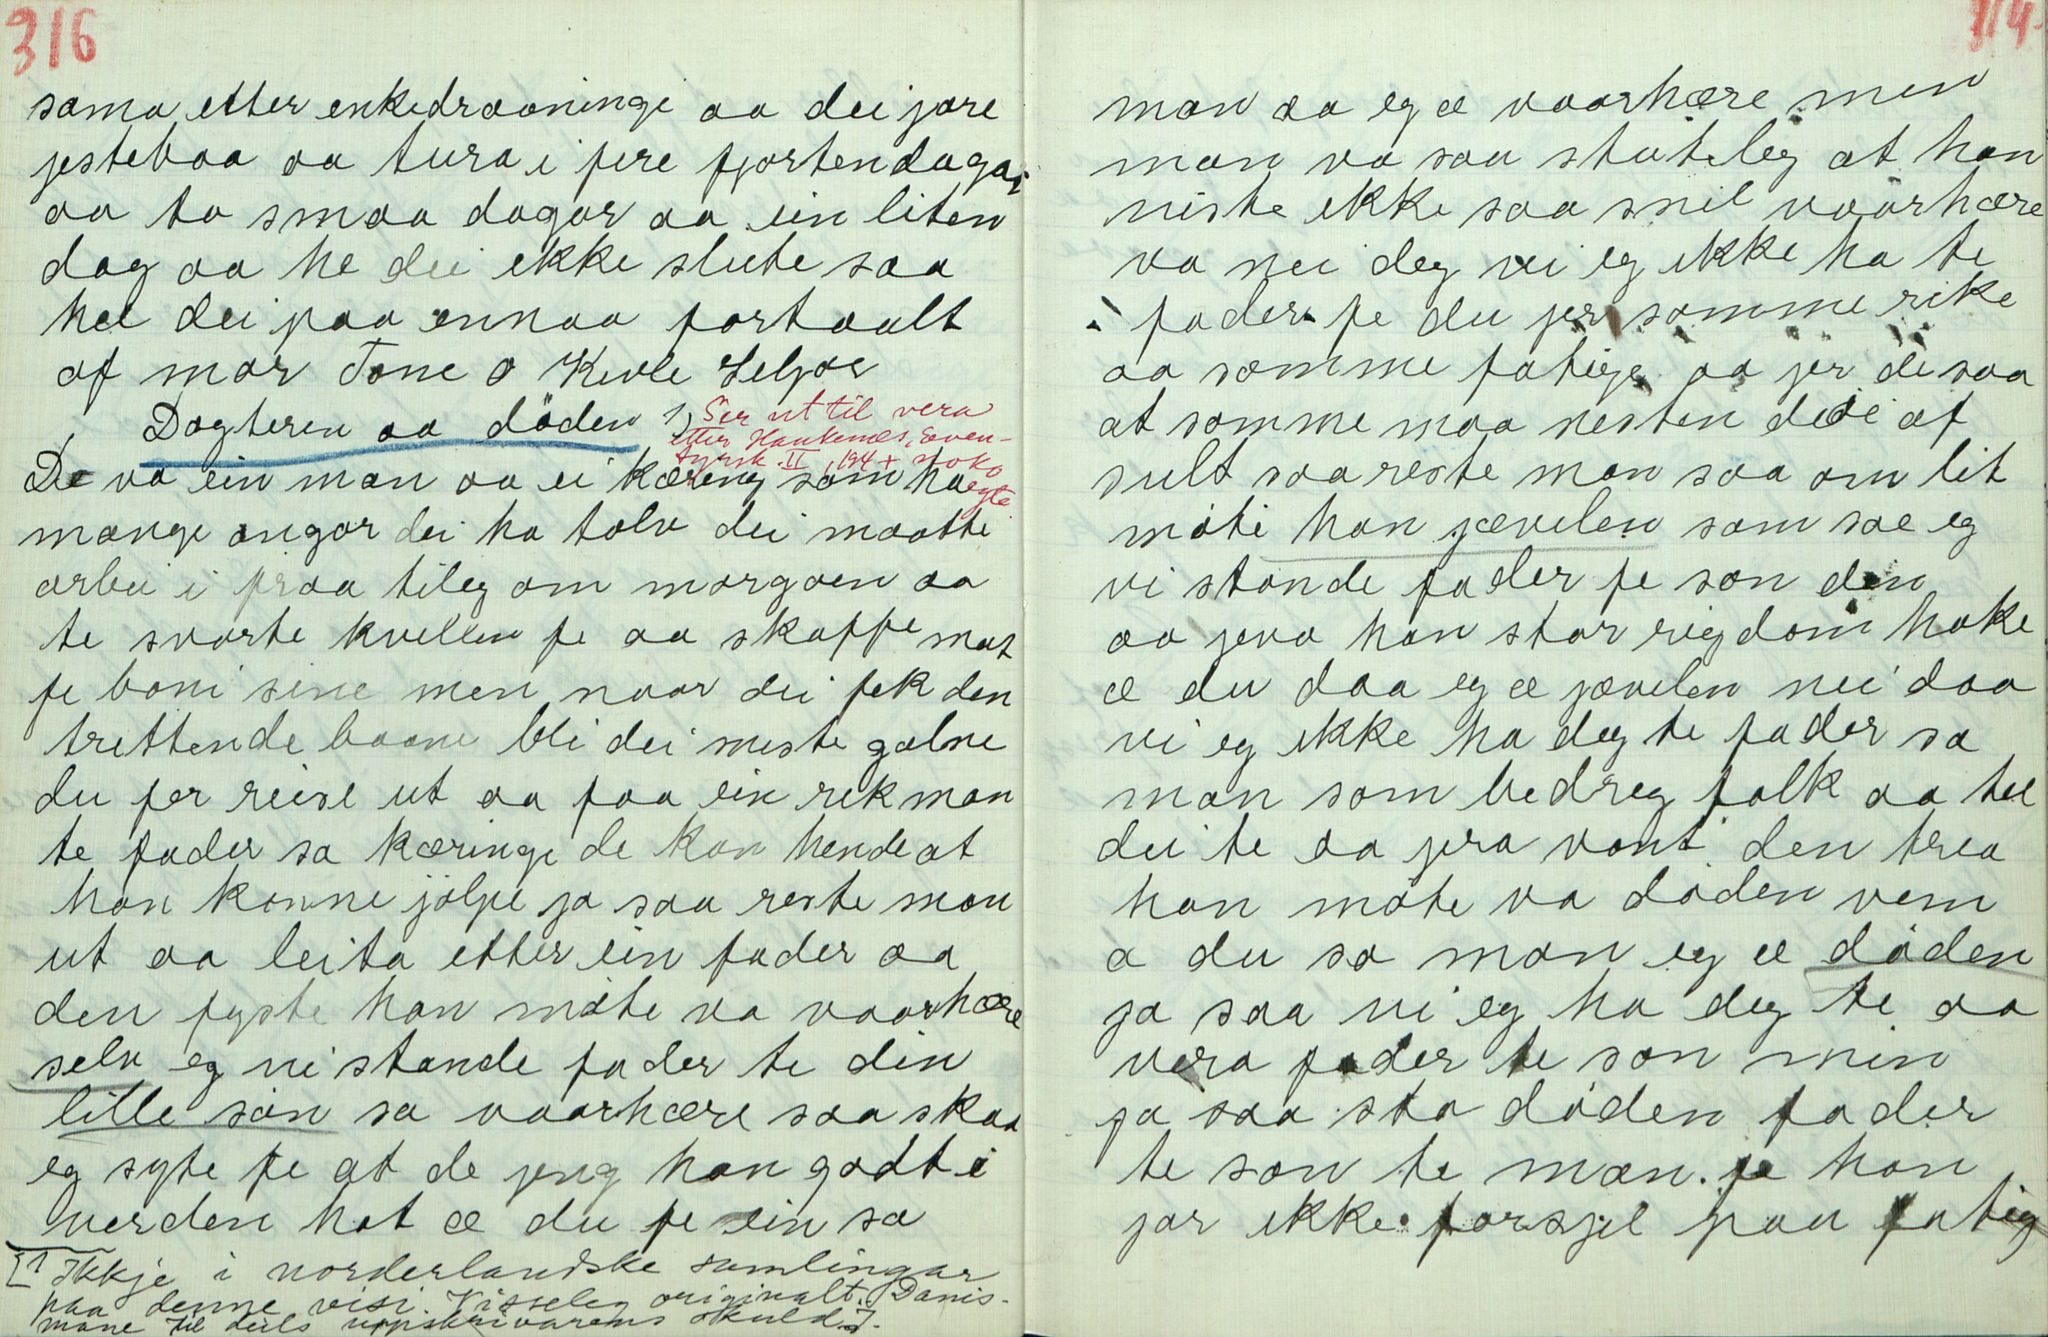 316
sama etter enkedraaningi aa dei jore
jestebaa aa tura i fire fjorten dagar
aa to smaa dagar aa ein liten
dag aa he dei ikke slute saa
hel dei paa ennaa fortaalt
af mor Tone o Kivle Seljor
Dagteren aa döden 1) Ser ut til vera
etter Haukenæs, Even-
tyrsk. II, 194 + noko
egte
De va ein man aa ei kæring som ha
mange ongar dei ha tolv dei maatte
arbei i fraa tileg om morgaen aa
te svarte kvellen fe aa skaffe mat
fe boni sine men naar dei fek den
trettende baane bli dei meste galne
du fer reise ut aa faa ein rek man
te fader sa kæringe de kan hende at
han konne jölpe ja saa reste man
ut aa leita etter ein fader aa
den fyste han möte va vaarhære
selv eg vi stande fader te din
lille sön sa vaarhære saa skaa
eg syte fe at de jeng han godt i
verden hot æ du fe ein sa
[1 Ikkje i norderlandske samlingar
paa denne visi. Visseleg originalt. Danis-
mane til deils uppskrivarens skuld.].
314
man aa eg æ vaarhære men
man va saa stuteleg at han
niste ikke saa snil vaarhære
va nei deg vi eg ikke ha te
fader fe du jer somme rike
aa somme fatige aa jer de saa
at somme maa nesten döe af
sult saa reste man saa om lit
möti han jævelen som sae eg
vi stande fader fe son din
aa jeva han stor rigdom hoke
æ du daa eg æ jævelen nei daa
vi eg ikke ha deg te fader sa
man som bedreg folk aa hel
dei te aa jera vont den trea
han möte va döden vem
æ du sa man eg æ döden
ja saa vi eg ha deg te aa
vera fader te son min
ja saa sto döden fader
te son te man. fe han
jor ikke forsjel paa fatig